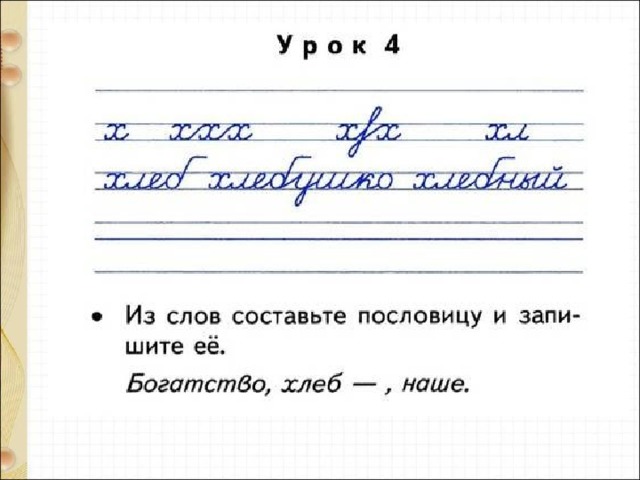 Урок 4
х ххх х х хл
хлеб хлебушко хлебный
• Из слов составьте пословицу и запи-
шите её.
Богатство, хлеб — , наше.